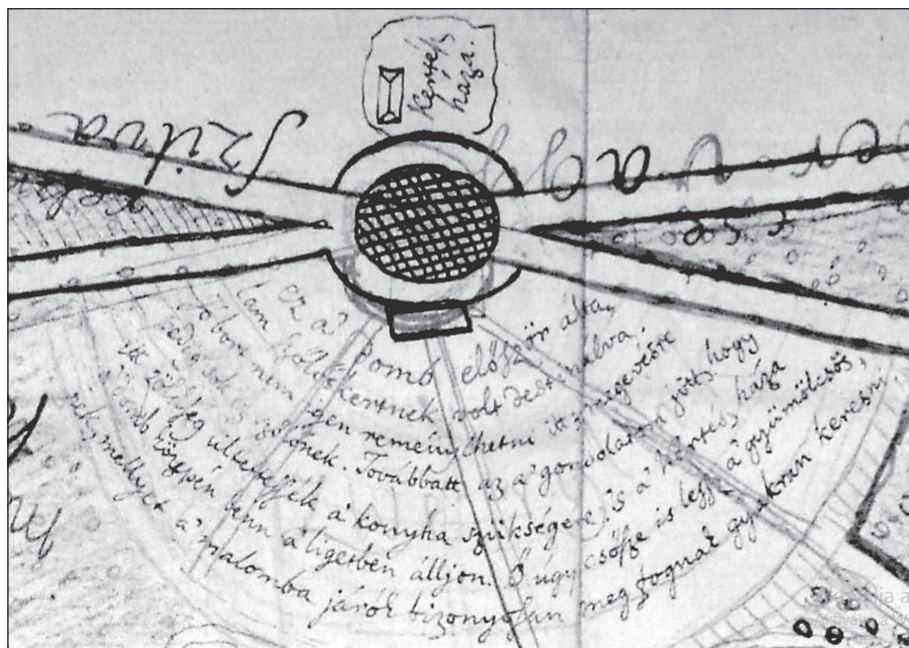 Kertész
háza.
Szilva
ez a' Domb először álta,
lam szőllő kertnek volt destinálva.
Többre nem igen reménylhetni itt megevésre
szőllőnek. Továbbatt az a' gondolatom jött, hogy
itt zöldség ültetessék a' konyha szükségére, 's a' kertész háza
a' domb közepén benn a' ligetben álljon. Ő úgy csősze is lessz a' gyümölcsös,
nek, mellyet a' malomba járók bizonyosan meg fognak gyakran keresni,